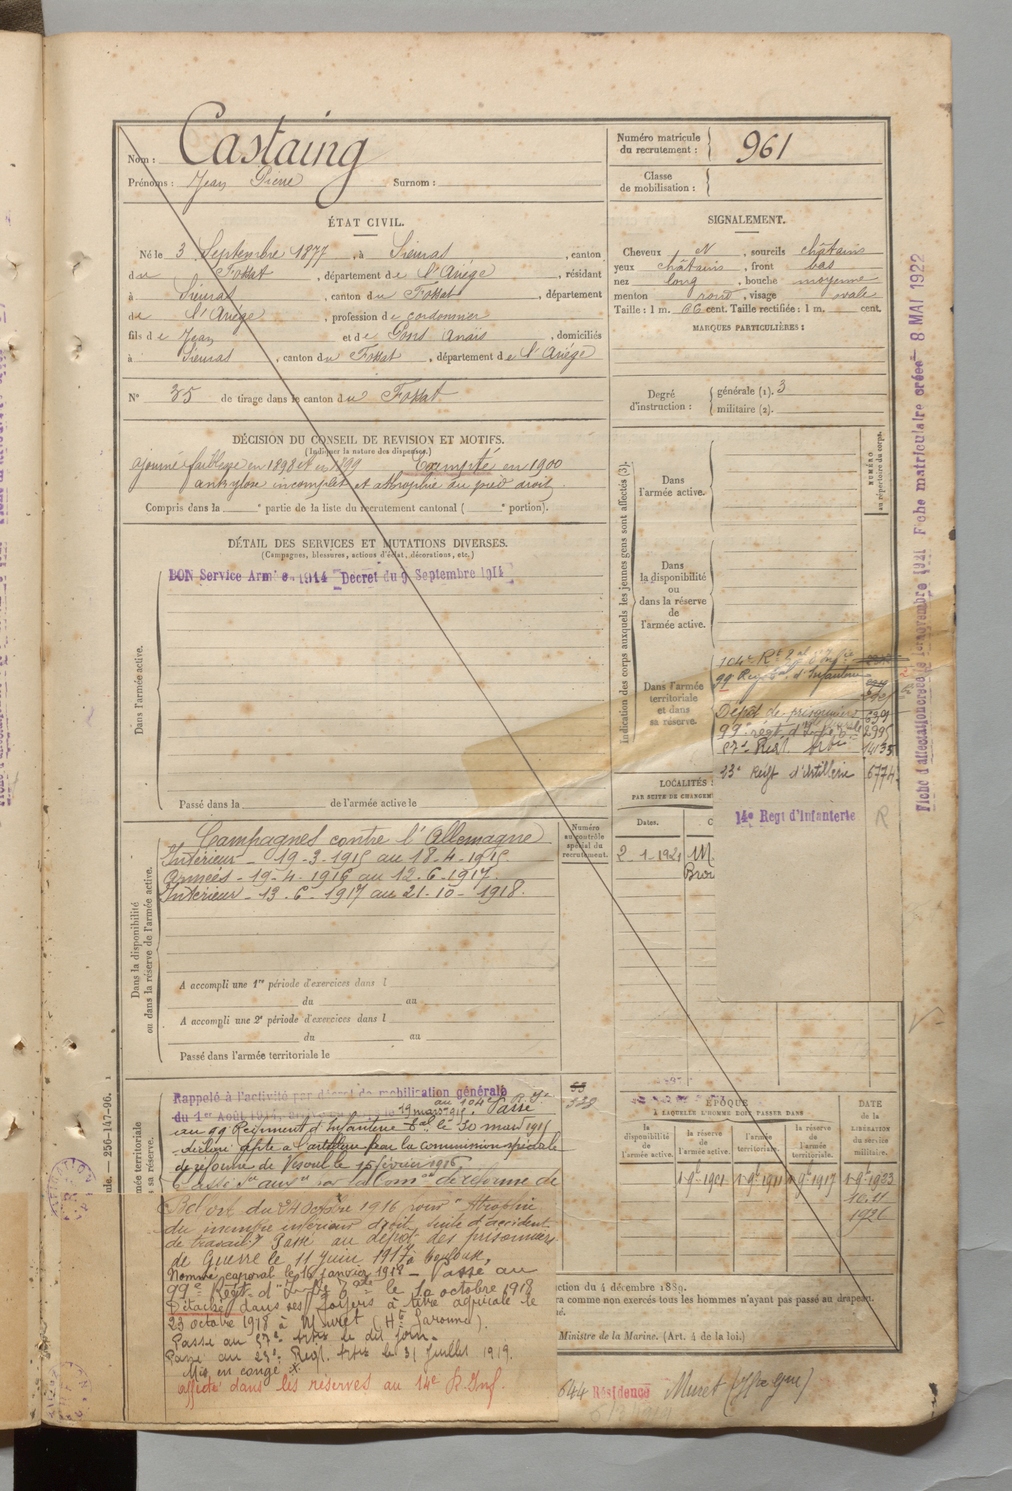 Nom : Castaing
Prénoms : Jean Pierre Surnom :
Numéro matricule du recrutement : 961
Classe de mobilisation :
ÉTAT CIVIL.
Né le 3 Septembre 1877, à Sieuras, canton
du Fossat, département de l'Ariège, résidant
à Sieuras, canton du Fossat, département
de l'Ariège, profession de cordonnier
fils de Jean et de Pons Anaïs, domiciliés
à Sieuras, canton du Fossat, département de l'Ariège
N° 35 de tirage dans le canton du Fossat
SIGNALEMENT.
Cheveux N, sourcils châtains
yeux châtains, front bas
nez long, bouche moyenne
menton rond, visage ovale
Taille : 1 m. 66 cent. Taille rectifiée : 1 m. cent.
MARQUES PARTICULIÈRES :
Degré d'instruction : générale (1). 3
militaire (2).
DÉCISION DU CONSEIL DE REVISION ET MOTIFS.
(Indiquer la nature des dispenses.)
ajourné faiblesse en 1898 et en 1899 Exempté en 1900
ankylose incomplet et athrophie du pied droit
Compris dans la e partie de la liste du recrutement cantonal ( e portion).
DÉTAIL DES SERVICES ET MUTATIONS DIVERSES.
(Campagnes, blessures, actions d'éclat, décorations, etc.)
BON Service Armée 1914 Décret du 9 Septembre 1914
Dans l'armée active.
Passé dans la de l'armée active le
Indication des corps auxquels les jeunes gens sont affectés (3).
NUMÉRO au répertoire du corps.
Dans l'armée active.
Dans la disponibilité ou dans la réserve de l'armée active.
Dans l'armée territoriale et dans sa réserve.
104e Rt
99e Regt d'Infanterie
Dépôt de prisonniers
99e régt d'Inf 2995
57e Regt 14135
23e Regt d'Artillerie 6774
14e Regt d'Infanterie
R
Fiche d'affectation créée le novembre 1921 Fiche matriculaire créée 8 MAI 1922
LOCALITÉS
PAR SUITE DE CHANGEM
Dates.
2-1-1921 M
Dans la disponibilité ou dans la réserve de l'armée active.
Numéro au contrôle spécial du recrutement.
Campagnes contre l'Allemagne
Intérieur - 19-3-1915 au 18-4-1915
Armées - 19-4-1916 au 12-6-1917.
Intérieur - 13-6-1917 au 21-10-1918.
A accompli une 1re période d'exercices dans l
du au
A accompli une 2e période d'exercices dans l
du au
Passé dans l'armée territoriale le
256-147-96.
Rappelé à l'activité par décret de mobilisation générale
du 1er Août 1914, le 19 mars 1915 au 104e Passé
au 99 Régiment d'Infanterie le 30 mars 1915
déclaré apte à l'artillerie par la commission spéciale
de réforme de Vesoul le 15 février 1916
Classé Sce auxre par la Comon de réforme de
du 24 Octobre 1916 pour Atrophie
du membre inférieur droit, suite d'accident
de travail. Passé au dépôt des prisonniers
de Guerre le 11 Juin 1917 à Toulouse,
Nommé caporal le 16 Janvier 1918 - Passé au
99e Régt d'Inf le 10 octobre 1918
Détaché dans ses foyers à titre agricole le
23 octobre 1918 à Muret (Hte Garonne).
Passé au 57e le dit jour.
Passé au 23e Regt le 31 Juillet 1919.
Mis en congé
affecté dans les réserves au 14e R. Inf.
ÉPOQUE
À LAQUELLE L'HOMME DOIT PASSER DANS
la disponibilité de l'armée active.
la réserve de l'armée active.
l'armée territoriale.
la réserve de l'armée territoriale.
DATE de la LIBÉRATION du service militaire.
1-9bre-1901 1-9bre-1911 1-9bre-1917 1-9bre-1923
1926
ction du 4 décembre 1889.
ra comme non exercés tous les hommes n'ayant pas passé au drapeau.
Ministre de la Marine. (Art. 4 de la loi.)
644 Résidence Muret